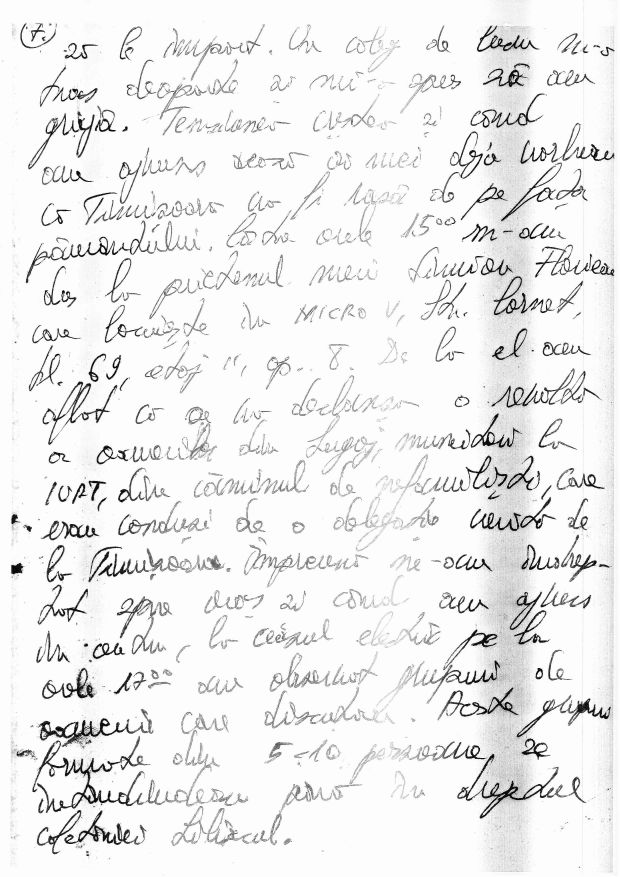 (7.)
să le împart. Un coleg de lucru m-a
tras deoparte și mi-a spus să am
grijă. Terminasem și cînd
am ajuns acasă ai mei deja vorbeau
că Timișoara va fi rasă de pe fața
pămîntului. Către orele 15⁰⁰ m-am
dus la prietenul meu Simion Florian
care locuiește în MICRO V, Str. Cornet,
bl. 69, etaj II, ap. 8. De la el am
aflat că se va declanșa o revoltă
a oamenilor din Lugoj, muncitori la
IURT, din căminul de nefamiliști, care
erau conduși de o delegație venită de
la Timișoara. Împreună ne-am îndrep-
tat spre oraș și cînd am ajuns
în centru, la ceasul electric pe la
orele 17⁰⁰ am observat grupuri de
oameni care discutau. Aceste grupuri
formate din 5-10 persoane se
întindeau pînă în dreptul
cofetăriei Liliacul.